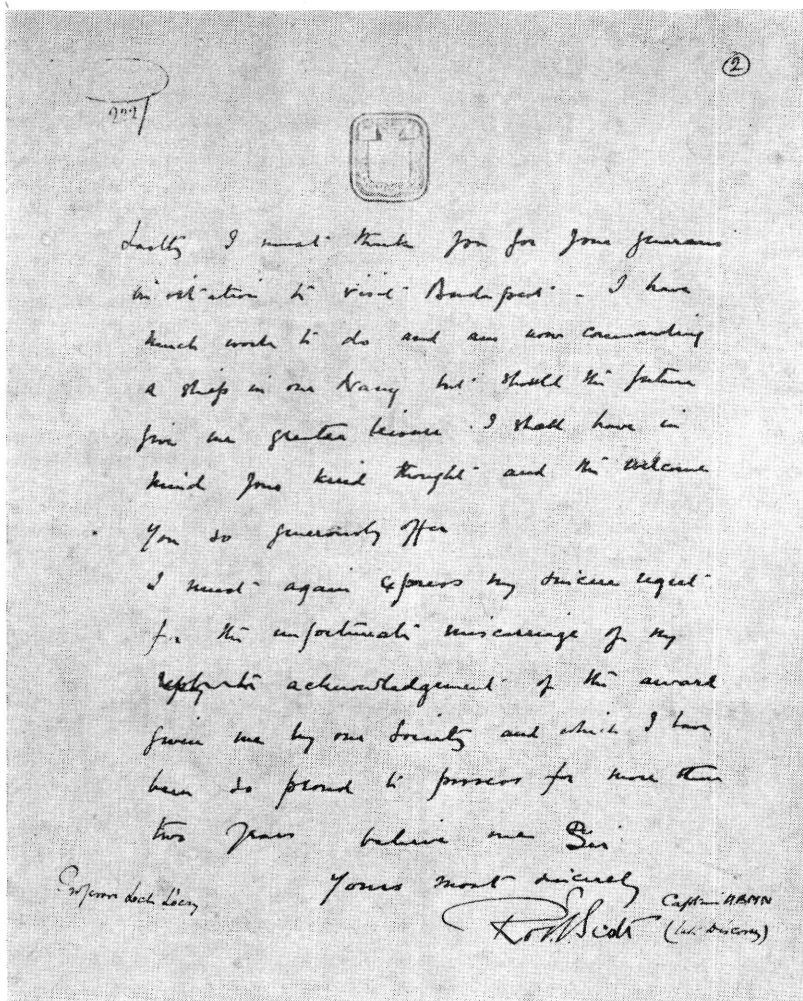 ②
222/
Lastly I must thank you for your generous
invitation to visit Budapest - I have
much work to do and am now commanding
a ship in our Navy but should the future
give me greater leisure I shall have in
mind your kind thought and the welcome
you so generously offer
I must again express my sincere regret
for the unfortunate miscarriage of my
acknowledgement of the award
given me by our Society and which I have
been so proud to possess for more than
two years believe me Sir
Yours most sincerely
Professor Lóczy
Captain